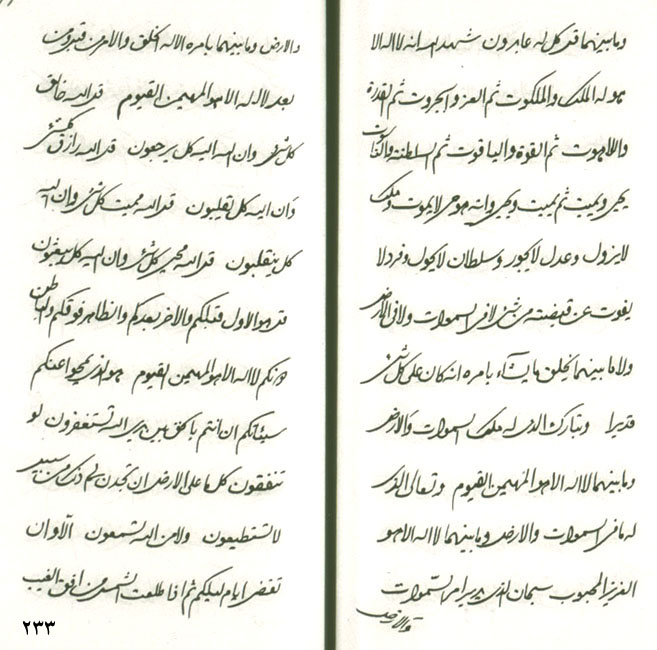 وما بينهما قل كل له عابدون شهد الله انه لا اله الا
هو له الملك والملكوت ثم العز والجبروت ثم القدرة
واللاهوت ثم القوة والياقوت ثم السلطنة والناسوت
يحيي ويميت ثم يميت ويحيي وانه هو حي لا يموت وملك
لا يزول وعدل لا يجور وسلطان لا يحول وفرد لا
يفوت عن قبضته من شئ لا في السموات ولا في الارض
ولا ما بينهما يخلق ما يشاء بامره انه كان على كل شئ
قديرا وتبارك الذي له ملك السموات والارض
وما بينهما لا اله الا هو المهيمن القيوم وتعالى الذي
له ما في السموات والارض وما بينهما لا اله الا هو
العزيز المحبوب سبحان الذي بيده امر السموات
والارض
والارض وما بينهما بامره الا له الخلق والامر من قبل ومن
بعد لا اله الا هو المهيمن القيوم قل الله خالق
كل شئ وان اليه كل يرجعون قل الله رازق كل شئ
وان اليه كل يقلبون قل الله مميت كل شئ وان اليه
كل ينقلبون قل الله محيي كل شئ وان اليه كل يبعثون
قل هو الاول قبلكم والاخر بعدكم والظاهر فوقكم والباطن
دونكم لا اله الا هو المهيمن القيوم هو الذي يمحو عنكم
سيئاتكم ان انتم بالحق بين يدي الله تستغفرون لو
تنفقون كل ما على الارض ان تجدن الى ذلك من سبيل
لا تستطيعون ولا من الله تسمعون الا وان
تقضى ايام ليلكم ثم اذا طلعت الشمس من افق الغيب
٢٣٣